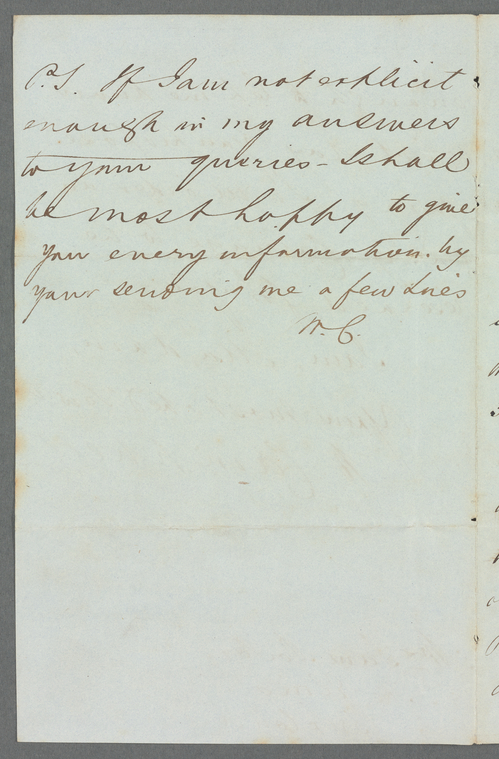 P.S. If I am not explicit
enough in my answers
to your queries - I shall
be most happy to give
you every information. by
your sending me a few Lines
W. C.